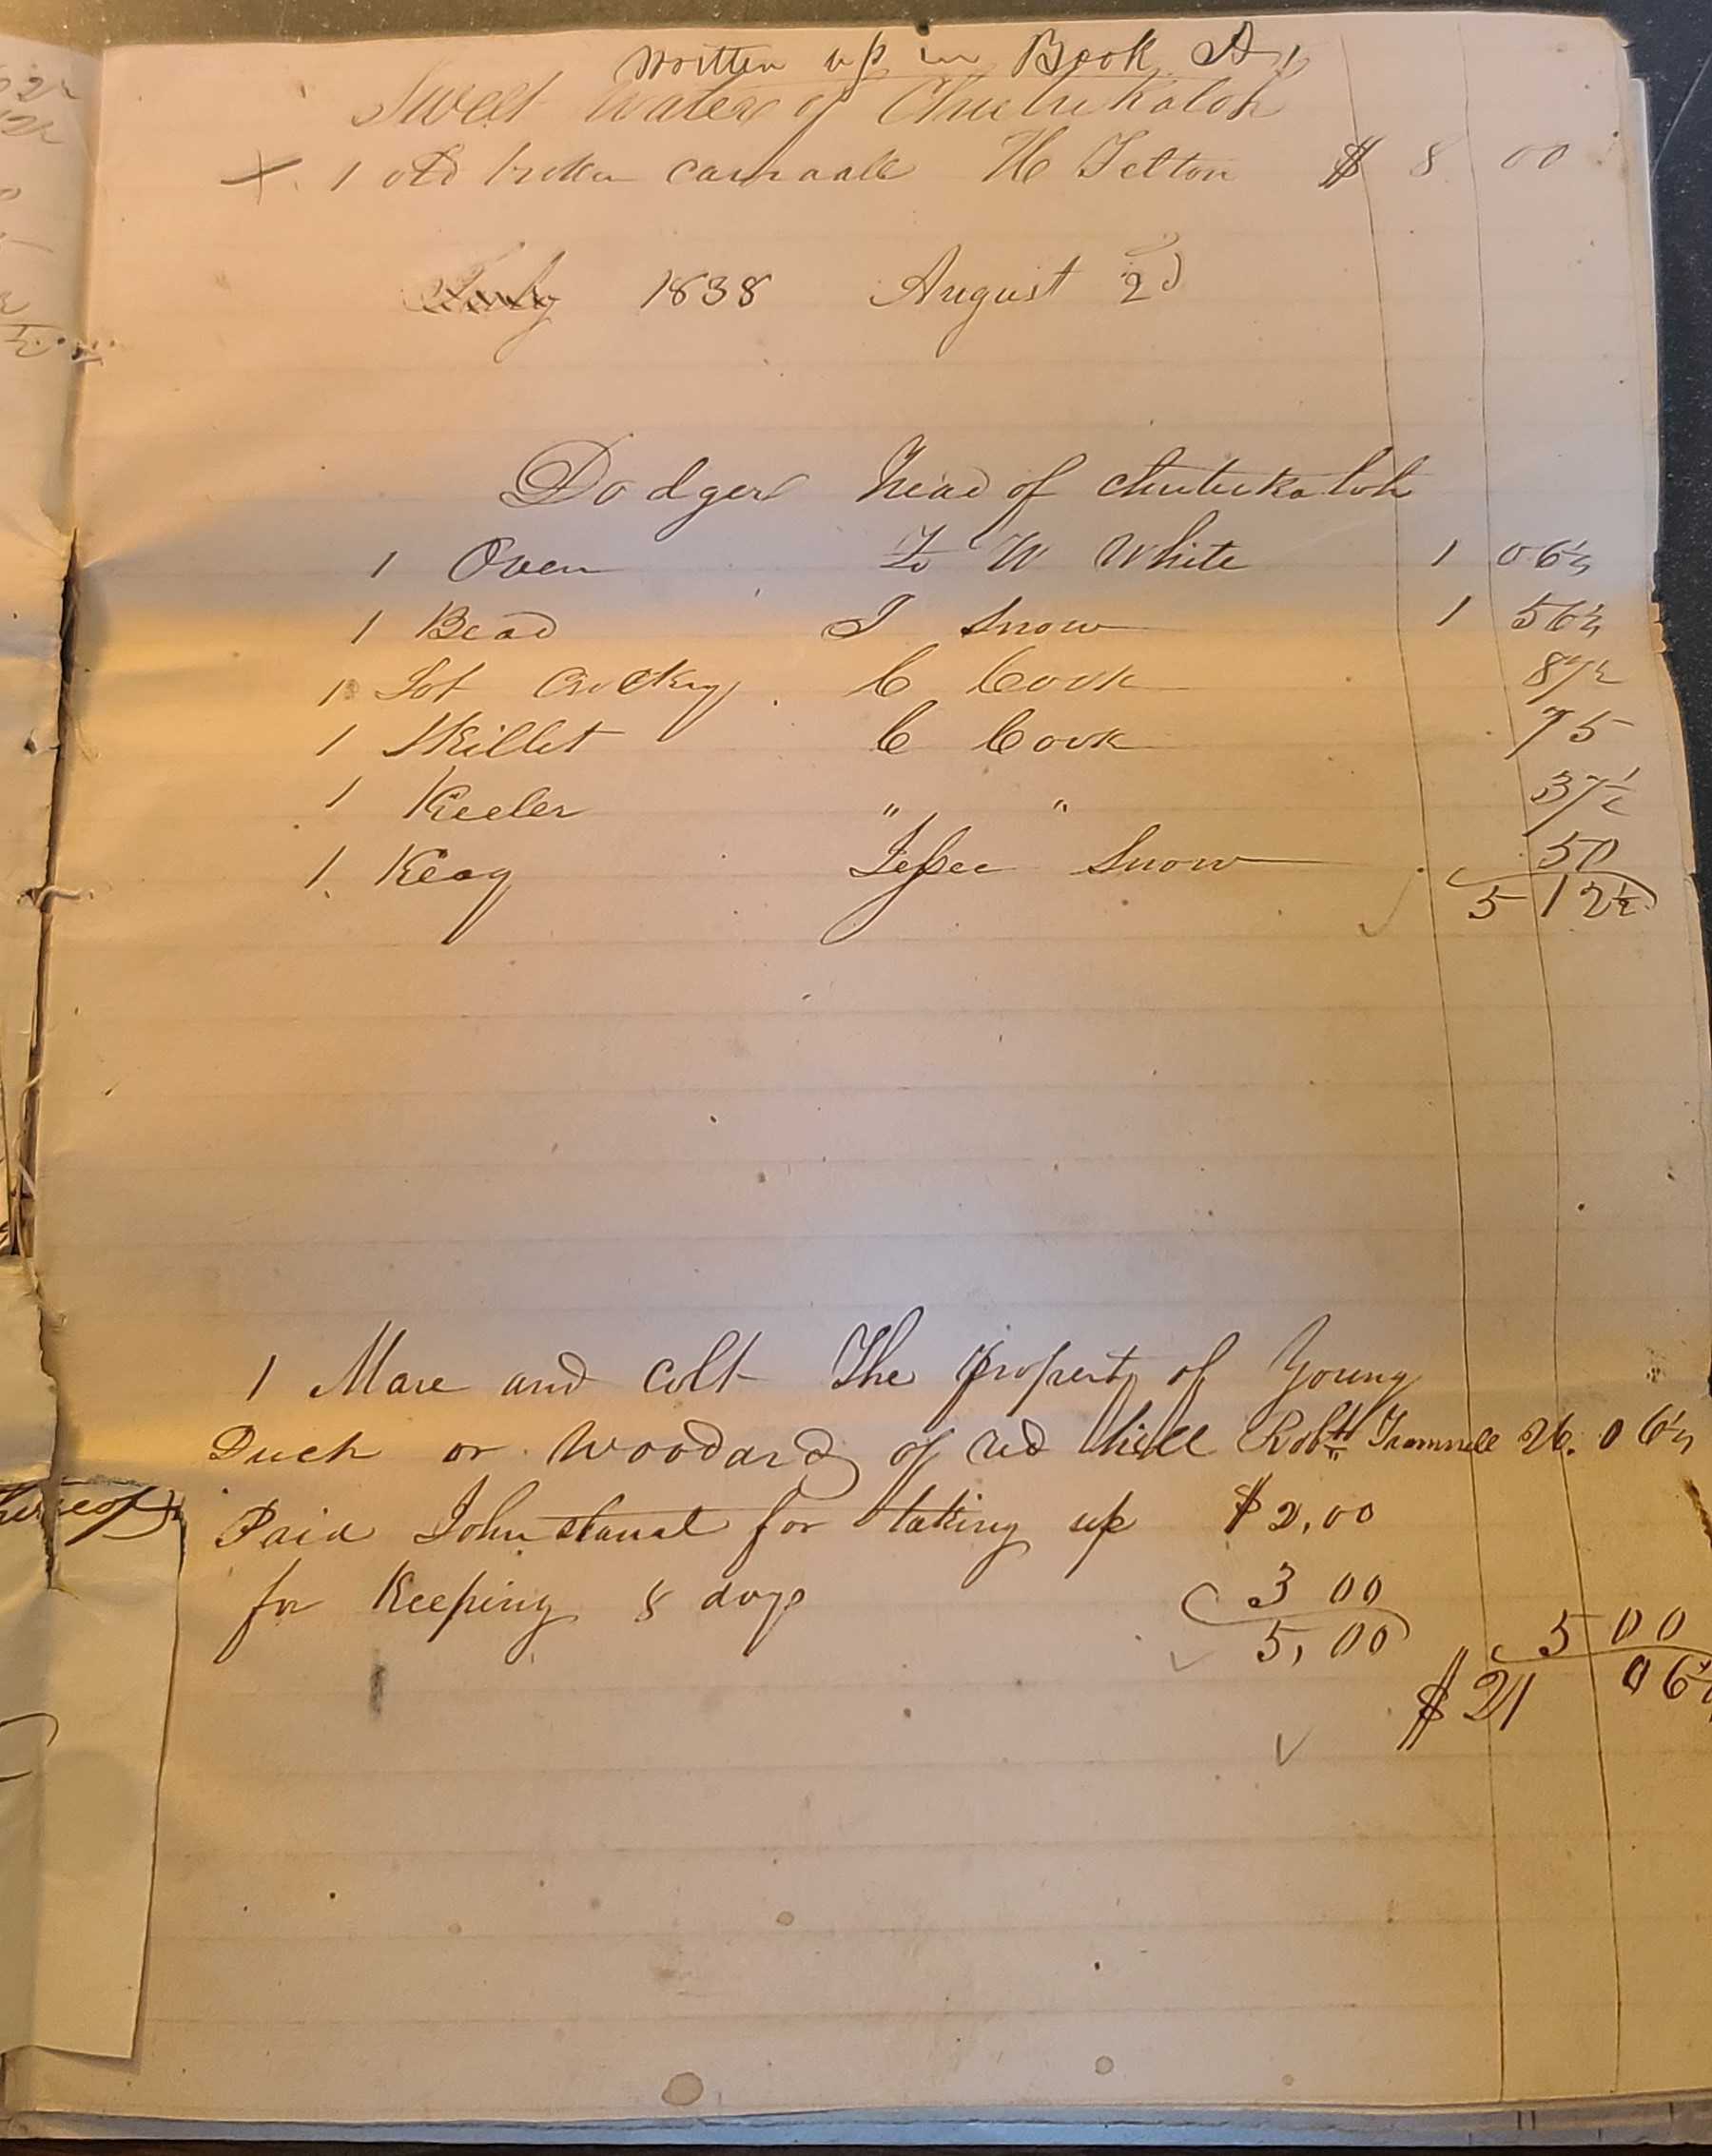 Written up in Book A,
Sweet Water of Chutukaloh
X. 1 old broken carraall H Felton $ 8 00
July 1838 August 2d
Dodger head of chutukaloh
1 Oven To W White 1 06¼
1 Bead J Snow 1 56¼
1 Lot Crockry. C Cook 87½
1 Skillet C Cook 75
1 Keeler " " 37½
1. Keag Jessee Snow 50
5 12½
1 Mare and colt The property of Young
Duck or Woodard of Red hill Robtt Trammell 26. 06¼
Paid John for taking up $2,00
for Keeping 8 days 3 00
5,00 5 00
$21 06¼